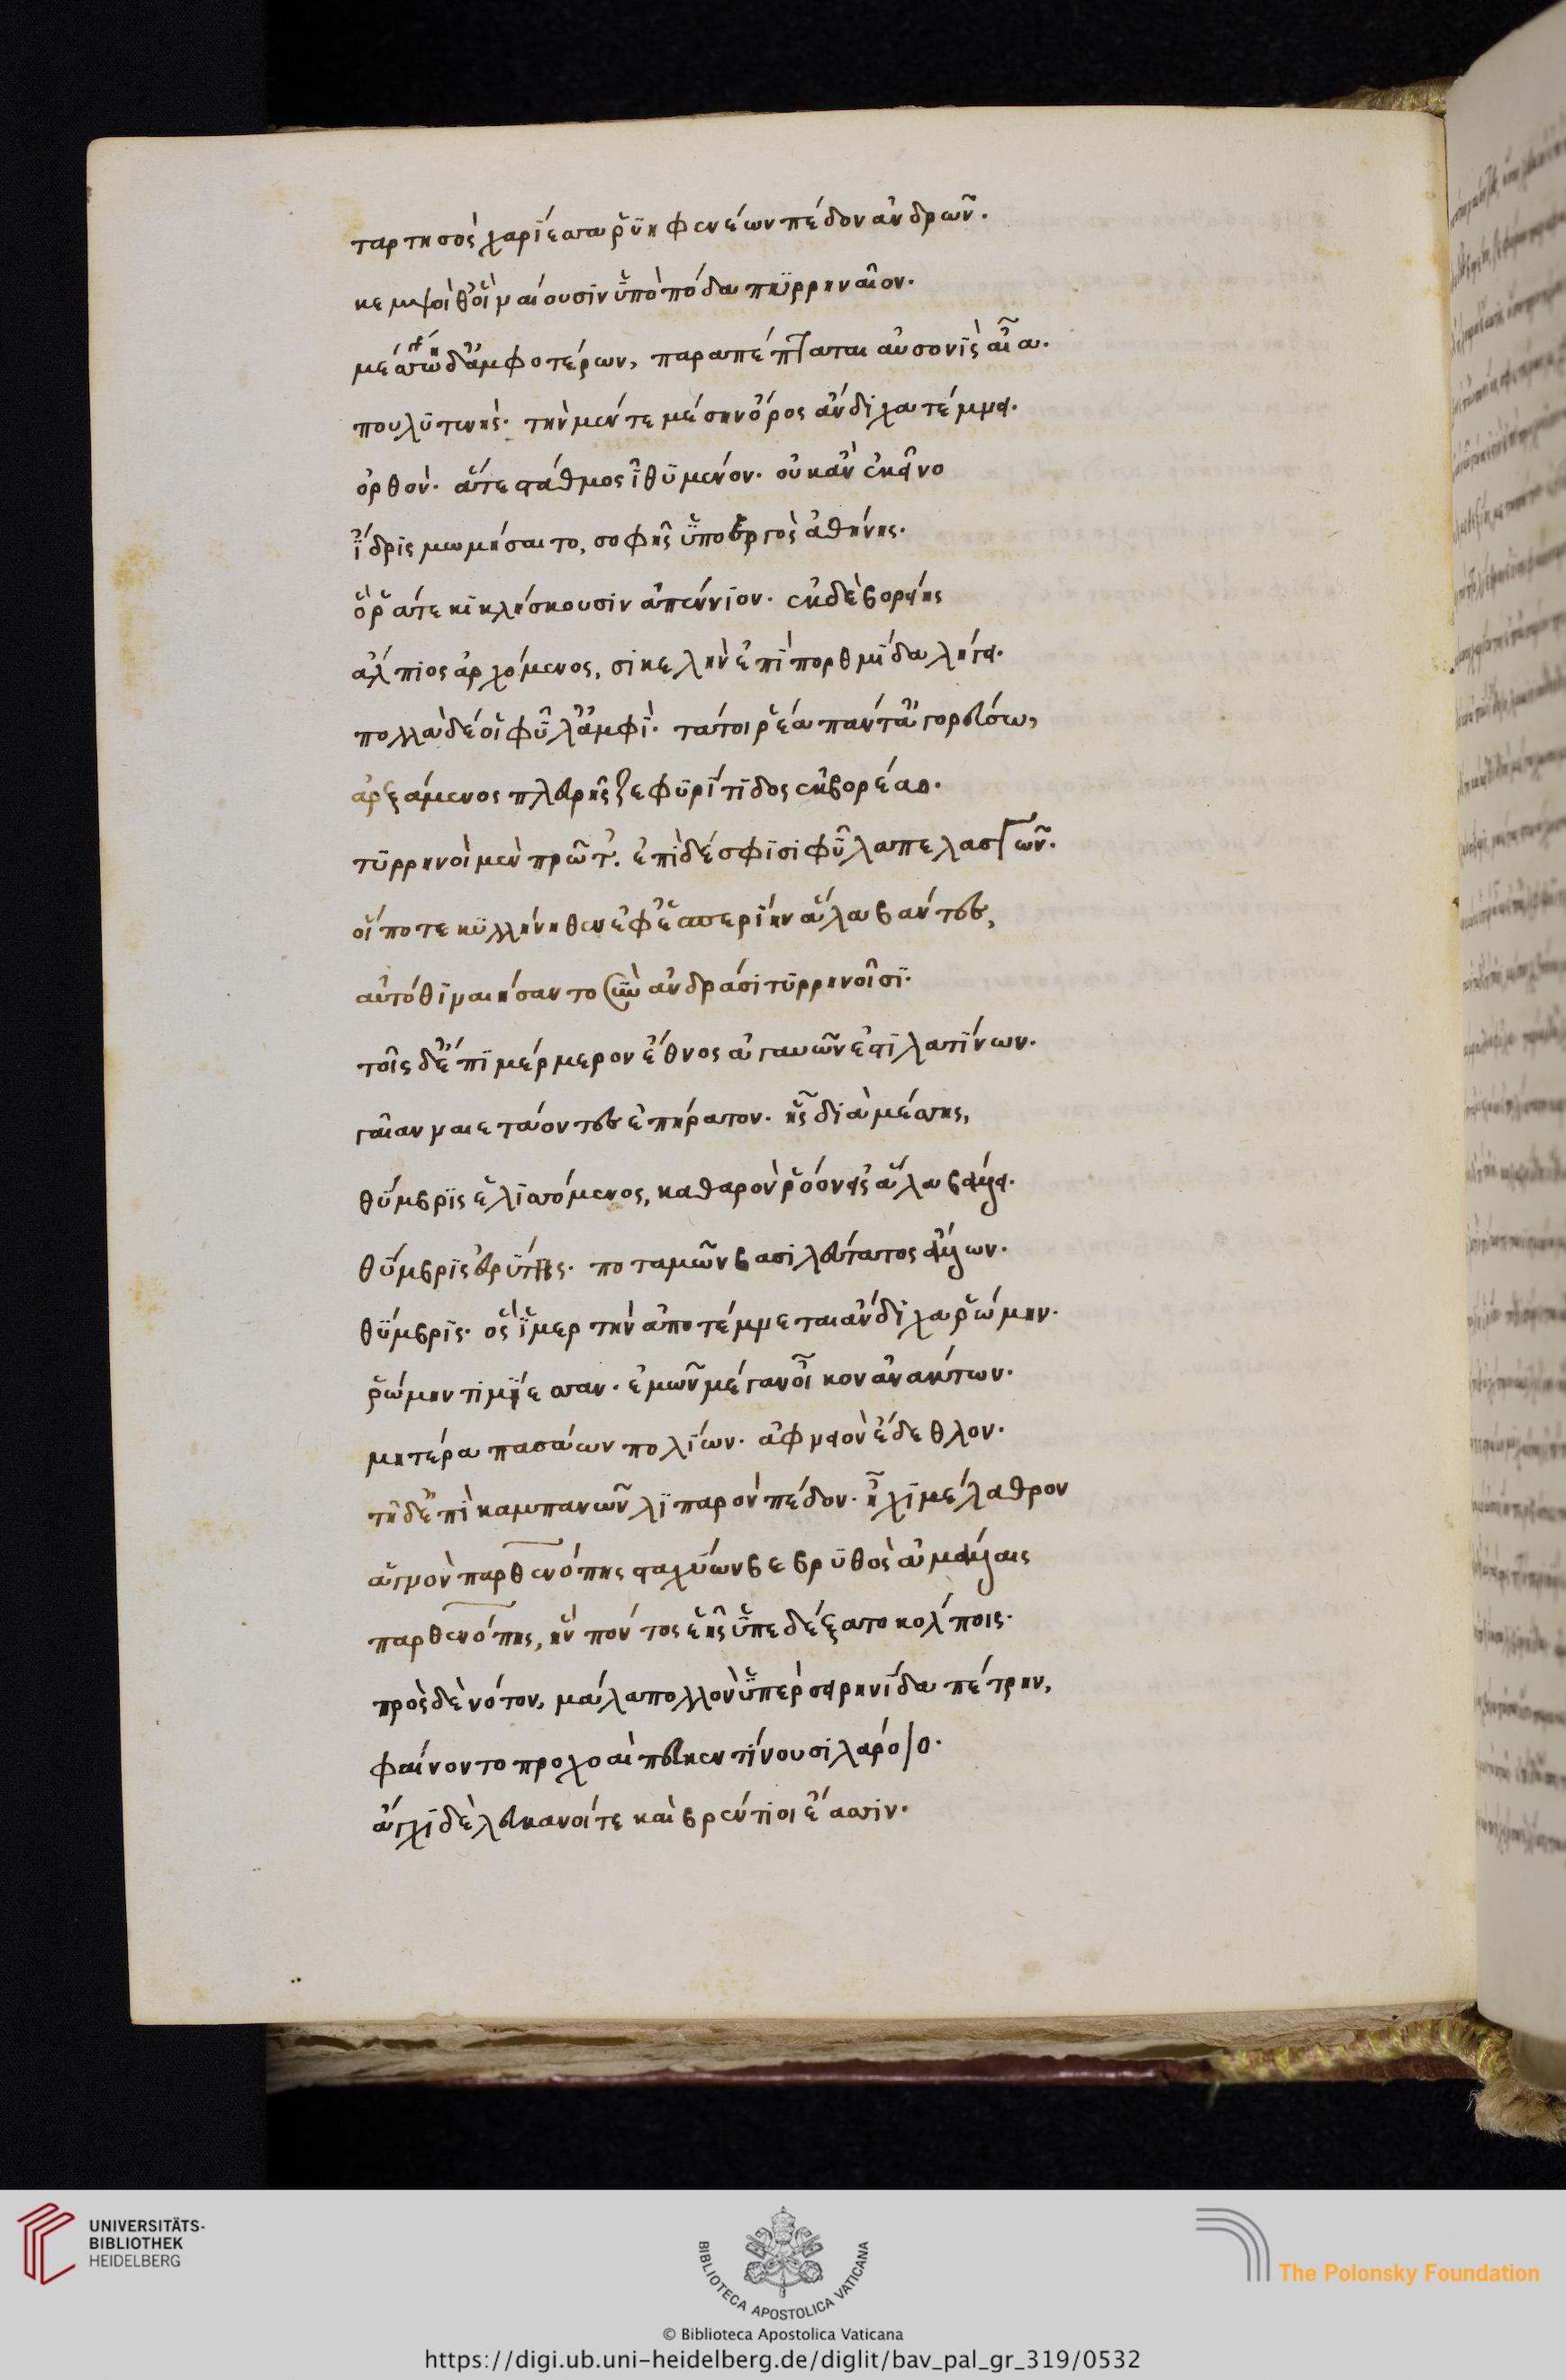 ταρτησὸς χαρίεσσα ῥυηφενέων πέδον ἀνδρῶν.
κεμψοί θ' οἳ ναίουσιν ὑπὸ πόδα πυρρηναῖον.
μέσσων δ' ἀμφοτέρων, παραπέπταται αὐσονὶς αἶα.
πουλυτενής· τὴν μέν τε μέσην ὄρος ἄνδιχα τέμνει.
ὀρθόν· ἅτε στάθμος ἰθυμένον· οὐκ ἂν ἐκεῖνο
ἴδρις μωμήσαιτο, σοφῆς ὑποεργὸς ἀθήνης·
ὅ ῥά τε κικλήσκουσιν ἀπέννιον· ἐκ δὲ βορείης
ἄλπιος ἀρχόμενος, σικελὴν ἐπὶ πορθμίδα λήγει.
πολλὰ δέ οἱ φῦλ' ἀμφὶ· τά τοι ῥέα πάντ' ἀγορεύσω,
ἀρξάμενος πλευρῆς ζεφυρίτιδος ἐκ βορέαο.
τυρρηνοὶ μὲν πρῶτ'. ἐπὶ δέ σφισι φῦλα πελασγῶν.
οἵ ποτε κυλλήνηθεν ἐφ' ἑσπερίην ἅλα βάντες,
αὐτόθι ναιήσαντο σὺν ἀνδράσι τυρρηνοῖσι·
τοῖς δ' ἔπι μέρμερον ἔθνος ἀγαυῶν ἐστὶ λατίνων.
γαῖαν ναιετάοντες ἐπήρατον. ἧς διὰ μέσσης,
θύμβρις ἑλισσόμενος, καθαρὸν ῥόον εἰς ἅλα βάλλει.
θύμβρις ἐυρύτης· ποταμῶν βασιλεύτατος ἄλλων.
θύμβρις· ὃς ἱμερτὴν ἀποτέμνεται ἄνδιχα ῥώμην.
ῥώμην τιμήεσσαν. ἐμῶν μέγαν οἶκον ἀνάκτων.
μητέρα πασάων πολίων. ἀφνειὸν ἔδεθλον.
τῇ δ' ἔπι καμπανῶν λιπαρὸν πέδον. ἧχι μέλαθρον
ἁγνὸν παρθενόπης σταχύων βεβρυθὸς ἀμάλλαις
παρθενόπης, ἣν πόντος ἑῆς ὑπεδέξατο κόλποις.
πρὸς δὲ νότον, μάλα πολλὸν ὑπὲρ σειρηνίδα πέτρην,
φαίνοντο προχοαὶ πευκεντίνου σιλάροιο.
ἄγχι δὲ λευκανοί τε καὶ βρέντιοι ἔασσιν.
UNIVERSITÄTS-
BIBLIOTHEK
HEIDELBERG
BIBLIOTECA APOSTOLICA VATICANA
The Polonsky Foundation
© Biblioteca Apostolica Vaticana
https://digi.ub.uni-heidelberg.de/diglit/bav_pal_gr_319/0532